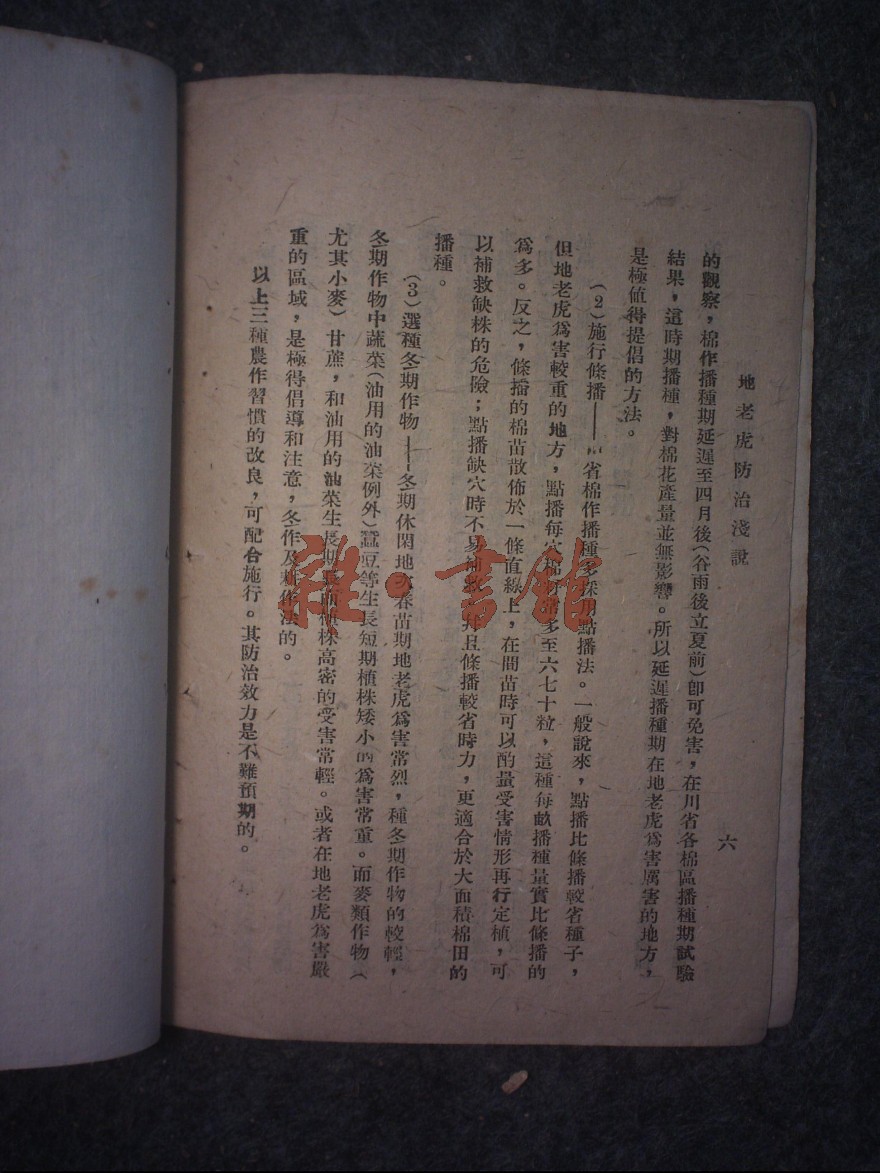 地老虎防治淺說
六
的觀察，棉作播種期延遲至四月後（谷雨後立夏前）卽可免害，在川省各棉區播種期試驗
結果，這時期播種，對棉花產量並無影響。所以延遲播種期在地老虎爲害厲害的地方，
是極値得提倡的方法。
（2）施行條播——川省棉作播種多採用點播法。一般說來，點播比條播較省種子，
但地老虎爲害較重的地方，點播每穴棉籽常多至六七十粒，這種每畝播種量實比條播的
爲多。反之，條播的棉苗散佈於一條直綫上，在間苗時可以酌量受害情形再行定植，可
以補救缺株的危險；點播缺穴時不易補救，并且條播較省時力，更適合於大面積棉田的
播種。
（3）選種冬期作物——冬期休閑地 春苗期地老虎爲害常烈，種冬期作物的較輕，
冬期作物中蔬菜（油用的油菜例外）蠶豆等生長短期植株矮小的爲害常重。而麥類作物（
尤其小麥）甘蔗，和油用的油菜生長期 植株高密的受害常輕。或者在地老虎爲害嚴
重的區域，是極得倡導和注意，冬作及耕作法的。
以上三種農作習慣的改良，可配合施行。其防治效力是不難預期的。
雜·書館